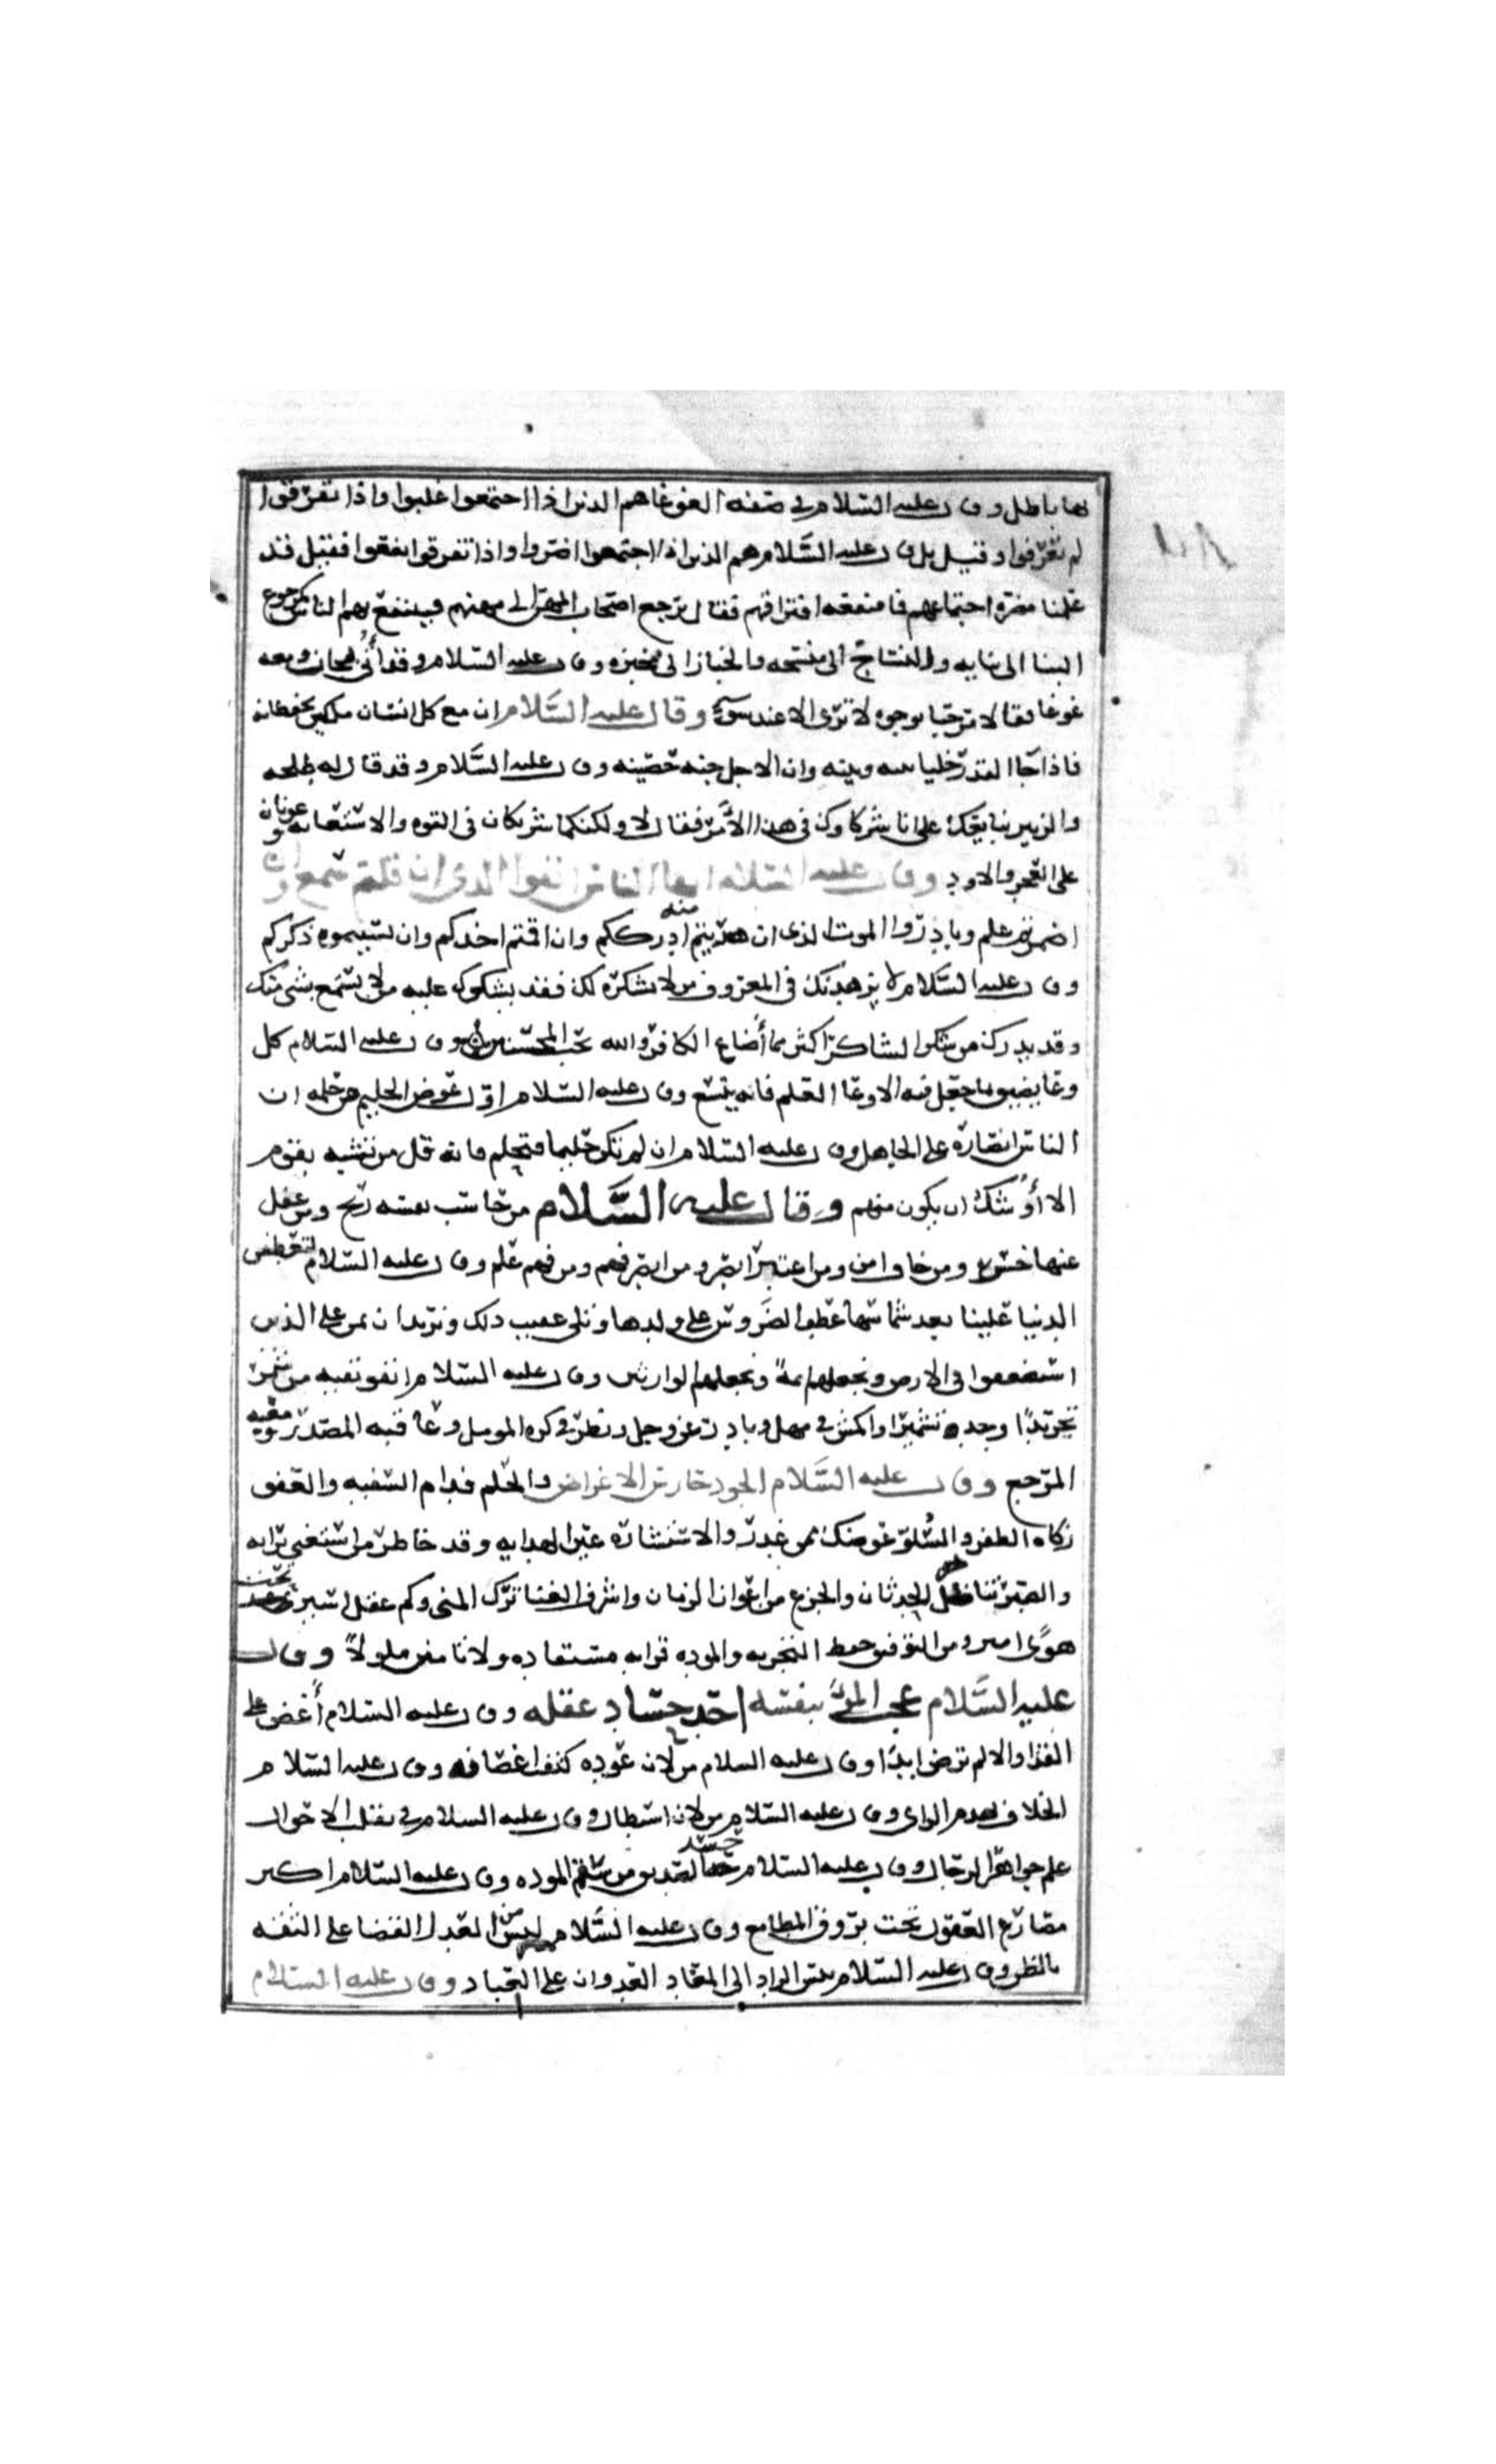 بها باطل وقال عليه السلام في صفه الغوغا هم الذين اذا اجتمعوا غلبوا واذا تفرقوا
لم يعرفوا وقيل بل قال عليه السلام هم الذين اذا اجتمعوا اضروا واذا تفرقوا نفعوا فقيل قد
علمنا مضره اجتماعهم فما منفعه افتراقهم فقال يرجع اصحاب المهن الى مهنهم فينتفع بهم الناس كرجوع
البنا الى بنايه والنساج الى منسجه والخباز الى مخبزه وقال عليه السلام وقد أتي بجان ومعه
غوغا فقال لا مرحبا بوجوه لا ترى الا عند سوءه وقال عليه السلام ان مع كل انسان ملكين يحفظانه
فاذا جا القدر خليا بينه وبينه وان الاجل جنه حصينه وقال عليه السلام وقد قال له طلحه
والزبير نبايعك على انا شركاوك في هذا الامر فقال لا ولكنكما شريكان في القوه والاستعانه وعونان
على العجز والاود وقال عليه السلام ايها الناس اتقوا الله الذي ان قلتم سمع وان
اضمرتم علم وبادروا الموت الذي ان هربتم منه ادرككم وان اقمتم اخذكم وان نسيتموه ذكركم
وقال عليه السلام لا يزهدنك في المعروف من لا يشكره لك فقد يشكرك عليه من لا يستمتع بشي منك
وقد يدرك من شكر الشاكر اكثر مما أضاع الكافر والله يحب المحسنين وقال عليه السلام كل
وعا يضيق بما جعل فيه الا وعا العلم فانه يتسع وقال عليه السلام اول عوض الحليم من حلمه ان
الناس انصاره على الجاهل وقال عليه السلام ان لم تكن حليما فتحلم فانه قل من تشبه بقوم
الا أوشك ان يكون منهم وقال عليه السلام من حاسب نفسه ربح ومن غفل
عنها خسر ومن خاف امن ومن اعتبر ابصر ومن ابصر فهم ومن فهم علم وقال عليه السلام لتعطفن
الدنيا علينا بعد شماسها عطف الضروس على ولدها وتلى عقيب ذلك ونريد ان نمن على الذين
استضعفوا في الارض ونجعلهم ائمة ونجعلهم الوارثين وقال عليه السلام اتقوا تقيه من شمر
تجريدا وجد تشميرا واكمش في مهل وبادر عن وجل ونظر في كره الموىل وعاقبه المصدر ومغبه
المرجع وقال عليه السلام الجود حارس الاعراض والحلم فدام السفيه والعفو
زكاه الظفر والسلو عوضك ممن غدر والاستشاره عين الهدايه وقد خاطر من استغنى برايه
والصبر يناضل الحدثان والجزع من اعوان الزمان واشرف الغنا ترك المنى وكم عقل اسير تحت
هوى امير ومن التوفيق حفظ التجربه والموده قرابه مستفاده ولا تامنن ملولا وقال
عليه السلام عجب المرء بنفسه احد حساد عقله وقال عليه السلام أغض على
القذا والا لم ترض ابدا وقال عليه السلام من لان عوده كثفت اغصانه وقال عليه السلام
الخلاف يهدم الراى وقال عليه السلام من نال استطال وقال عليه السلام في تقلب الاحوال
علم جواهر الرجال وقال عليه السلام حسد الصديق من سقم الموده وقال عليه السلام اكثر
مصارع العقول تحت بروق المطامع وقال عليه السلام ليس من العدل القضا على الثقه
بالظن وقال عليه السلام بئس الزاد الى المعاد العدوان على العباد وقال عليه السلام